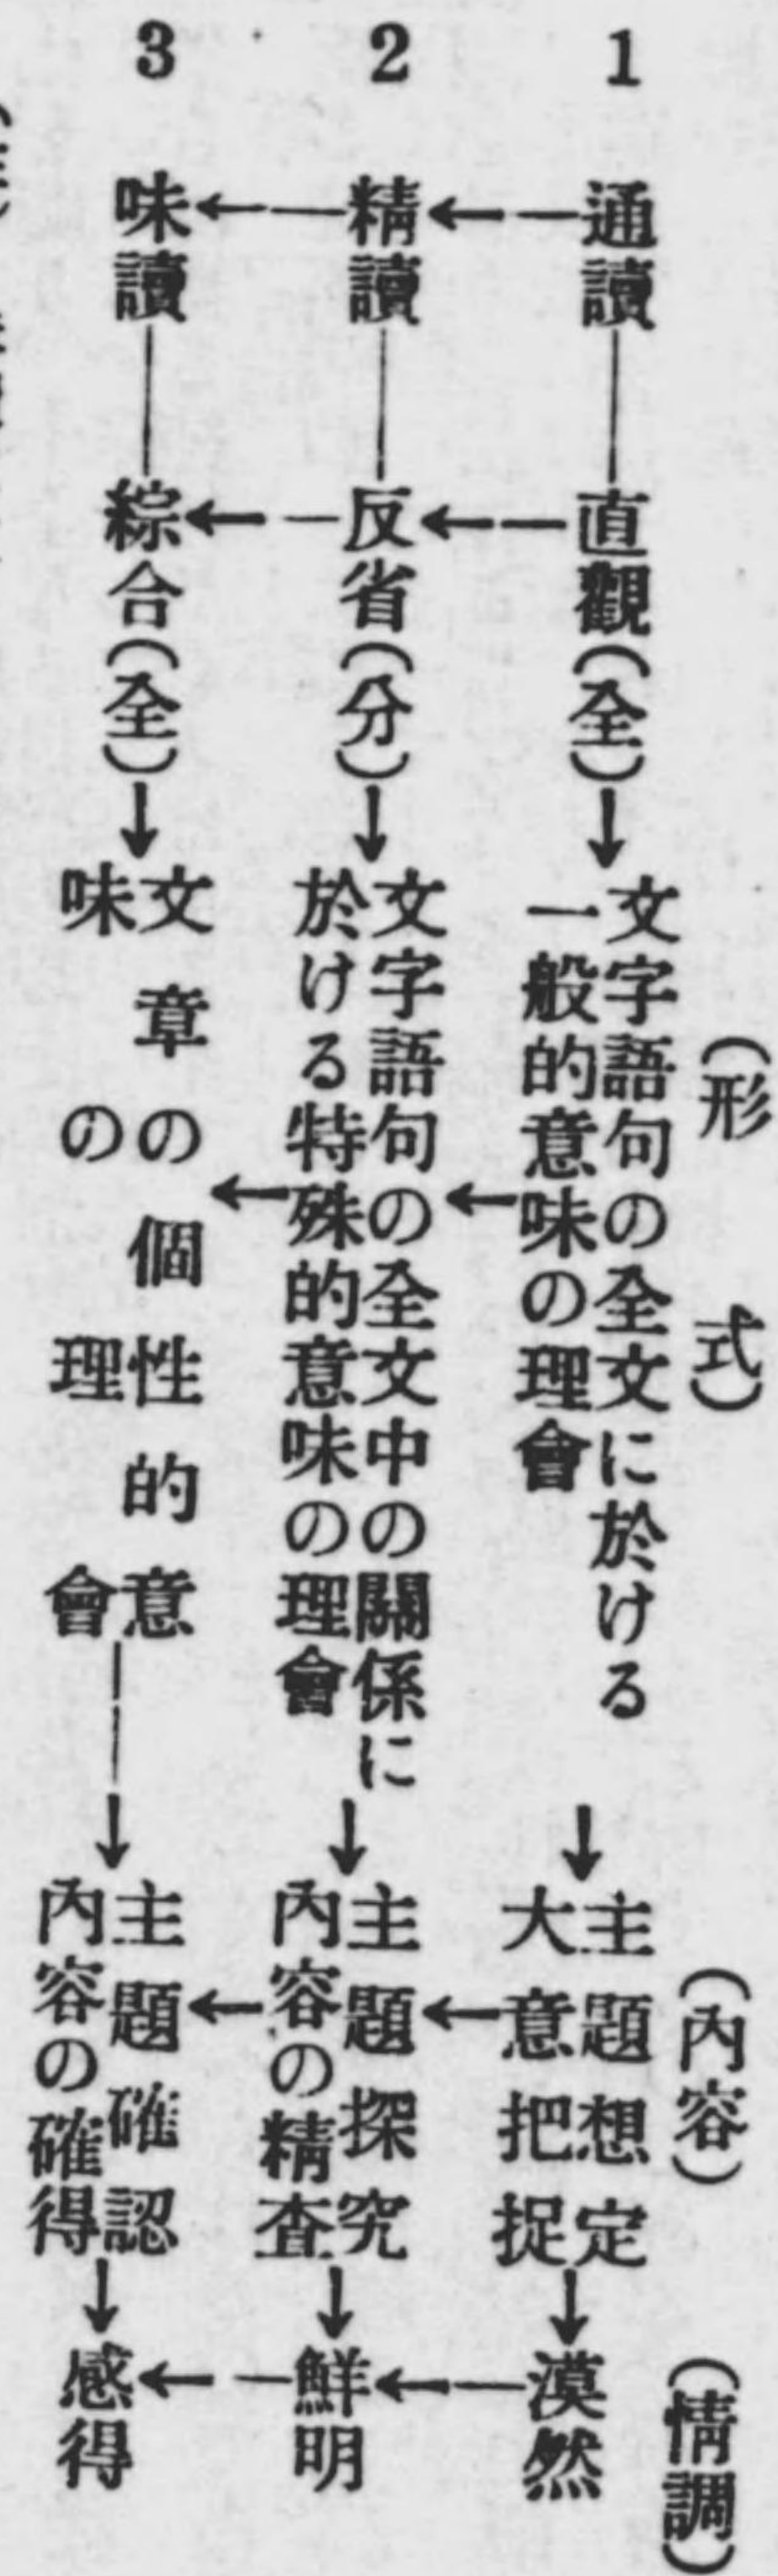 (形式)
(內容)
(情調)
1 通讀 直觀(全)
文字語句の全文に於ける
一般的意味の理會
主題想定
大意把捉
漠然
2 精讀 反省(分)
文字語句の全文中の關係に
於ける特殊的意味の理會
主題探究
內容の精査
鮮明
3 味讀 綜合(全)
文章の個性的意
味の理會
主題確認
內容の確得
感得